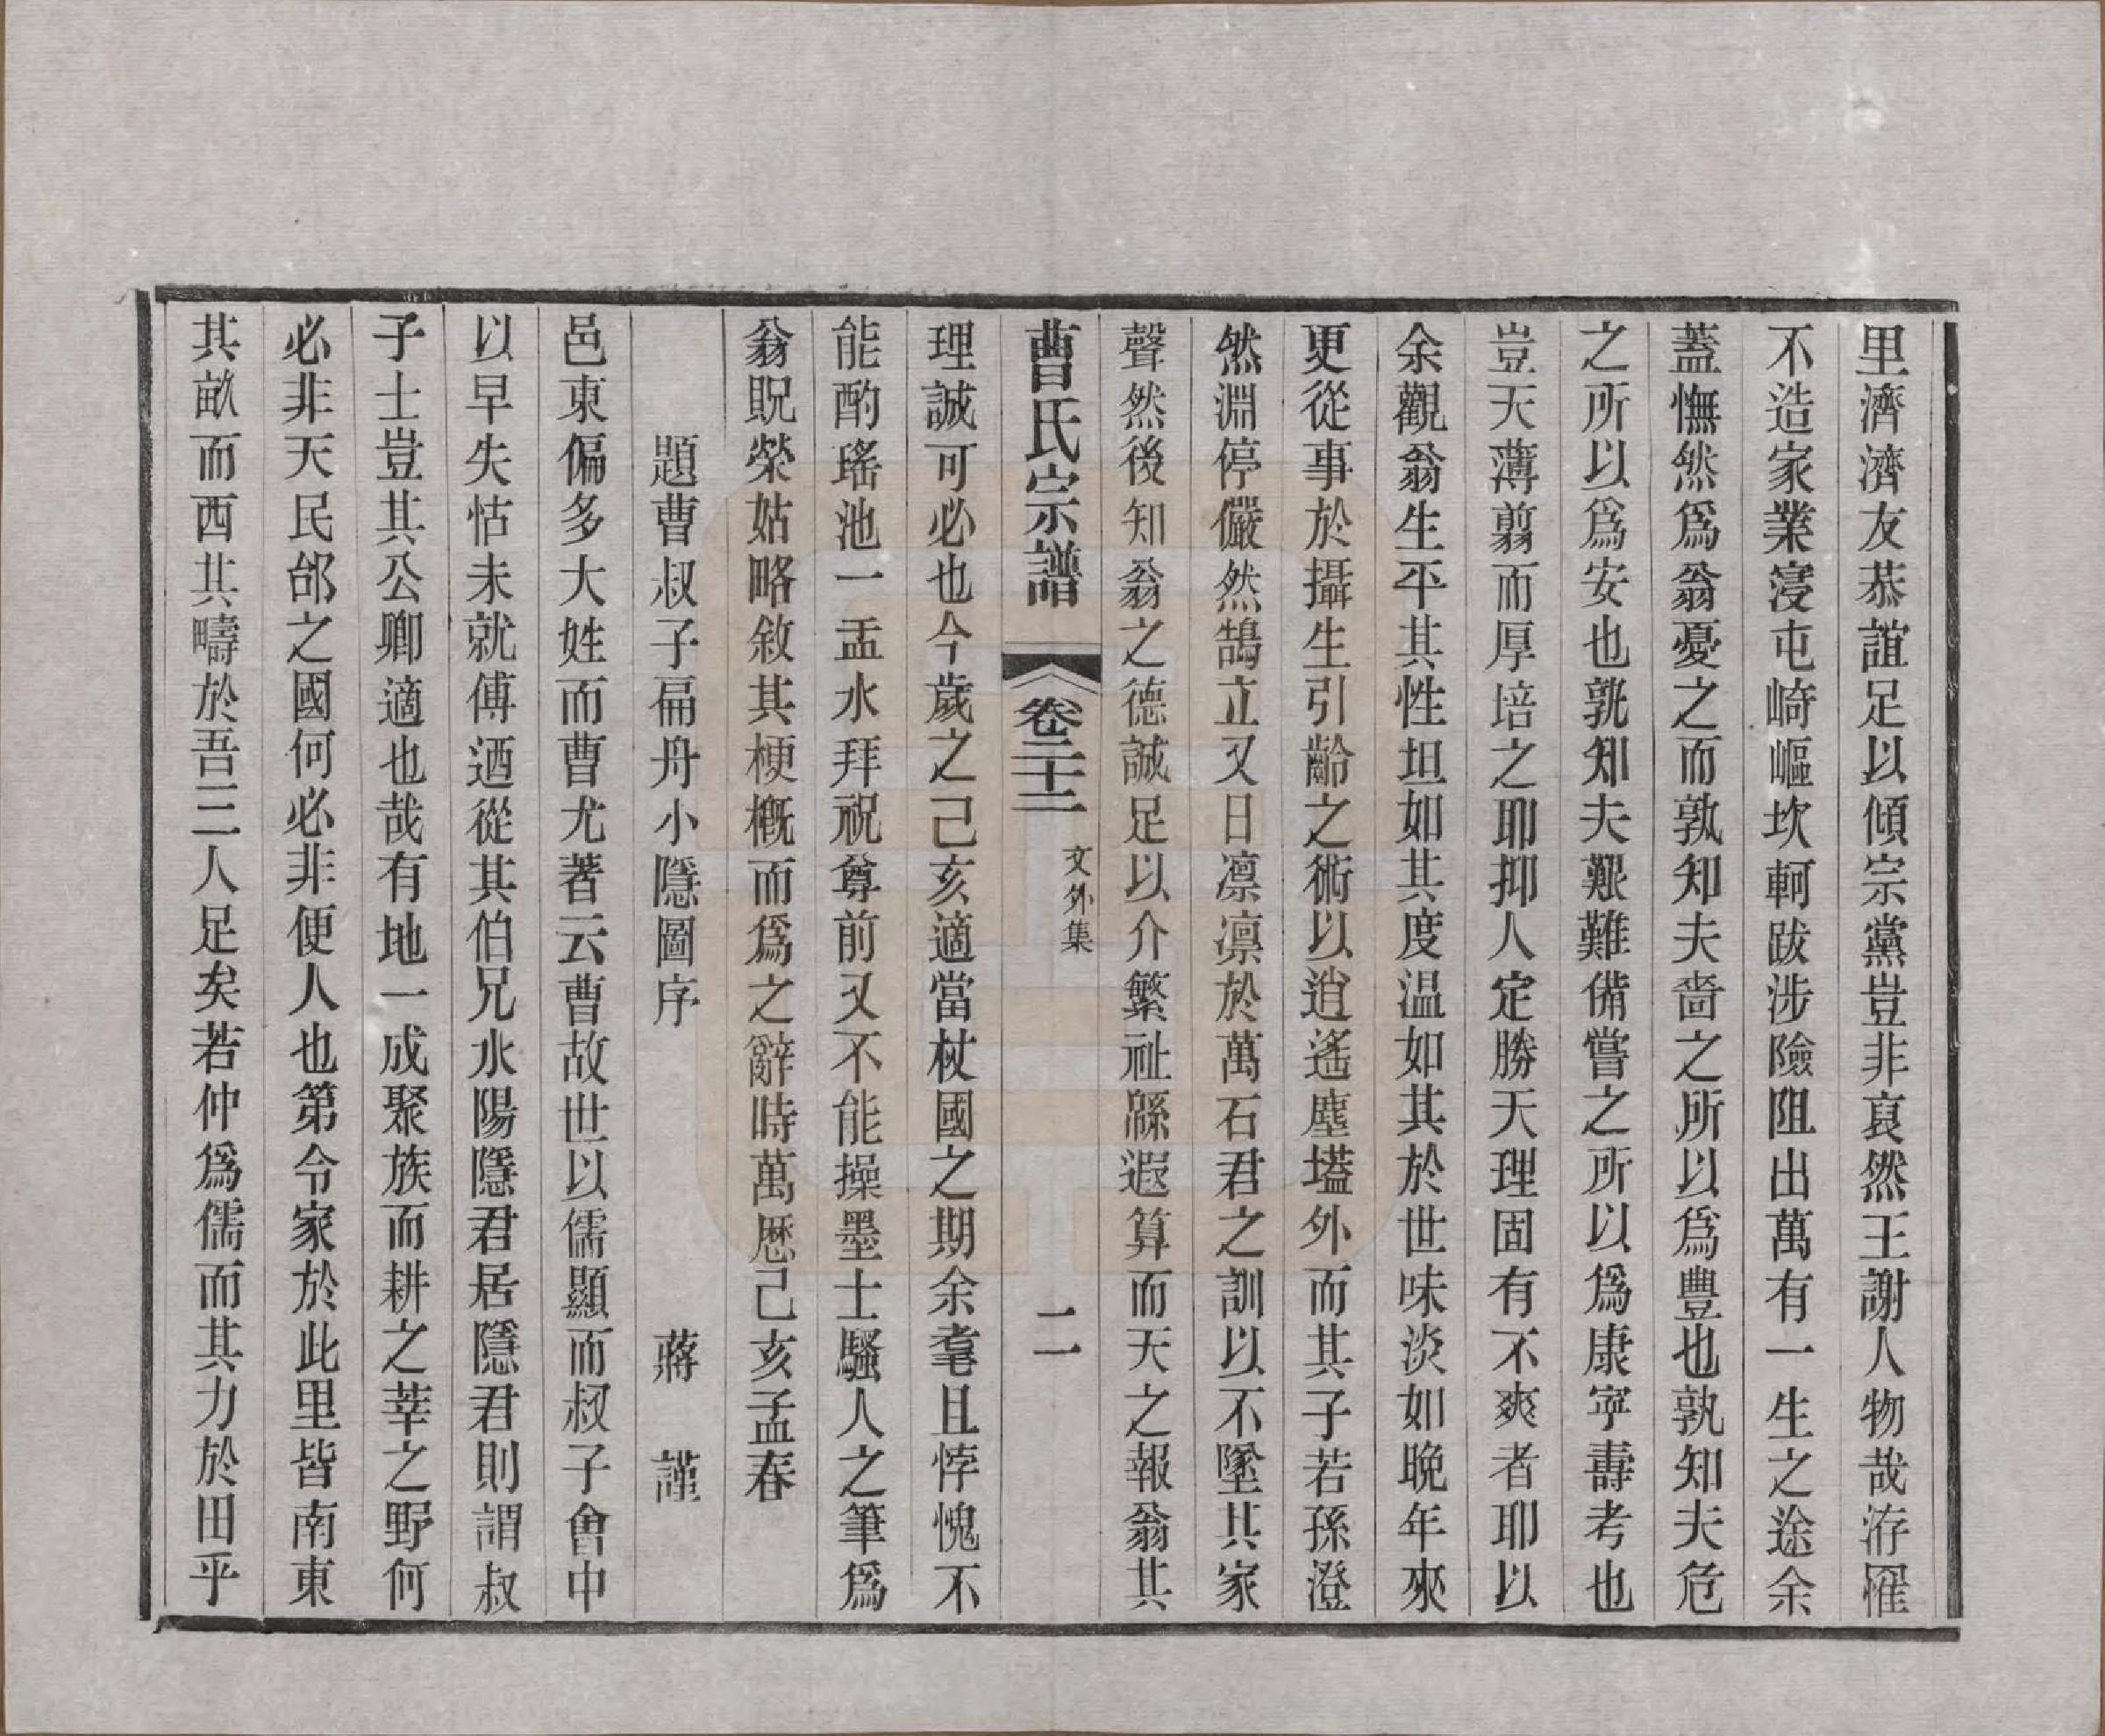 里濟濟友恭誼足以傾宗黨豈非裒然王謝人物哉洊罹
不造家業寖屯崎嶇坎軻跋涉險阻出萬有一生之途余
蓋憮然爲翁憂之而孰知夫嗇之所以爲豐也孰知夫危
之所以爲安也孰知夫艱難備嘗之所以爲康寧壽考也
豈天薄翦而厚培之耶抑人定勝天理固有不爽者耶以
余觀翁生平其性坦如其度温如其於世味淡如晩年來
更從事於攝生引齡之術以逍遙塵壒外而其子若孫澄
然淵停儼然鵠立又日凛凛於萬石君之訓以不墜其家
聲然後知翁之德誠足以介繁祉緜遐算而天之報翁其
曹氏宗譜 卷二十二 文外集 二
理誠可必也今歲之己亥適當杖國之期余耄且悖愧不
能酌瑤池一盂水拜祝尊前又不能操墨士騷人之筆爲
翁貺榮姑略敘其梗槪而爲之辭時萬厯己亥孟春
題曹叔子扁舟小隱圖序 蔣 謹
邑東偏多大姓而曹尤著云曹故世以儒顯而叔子會中
以早失怙未就傅迺從其伯兄水陽隱君居隱君則謂叔
子士豈其公卿適也哉有地一成聚族而耕之莘之野何
必非天民郃之國何必非便人也第令家於此里皆南東
其畝而西其疇於吾三人足矣若仲爲儒而其力於田乎